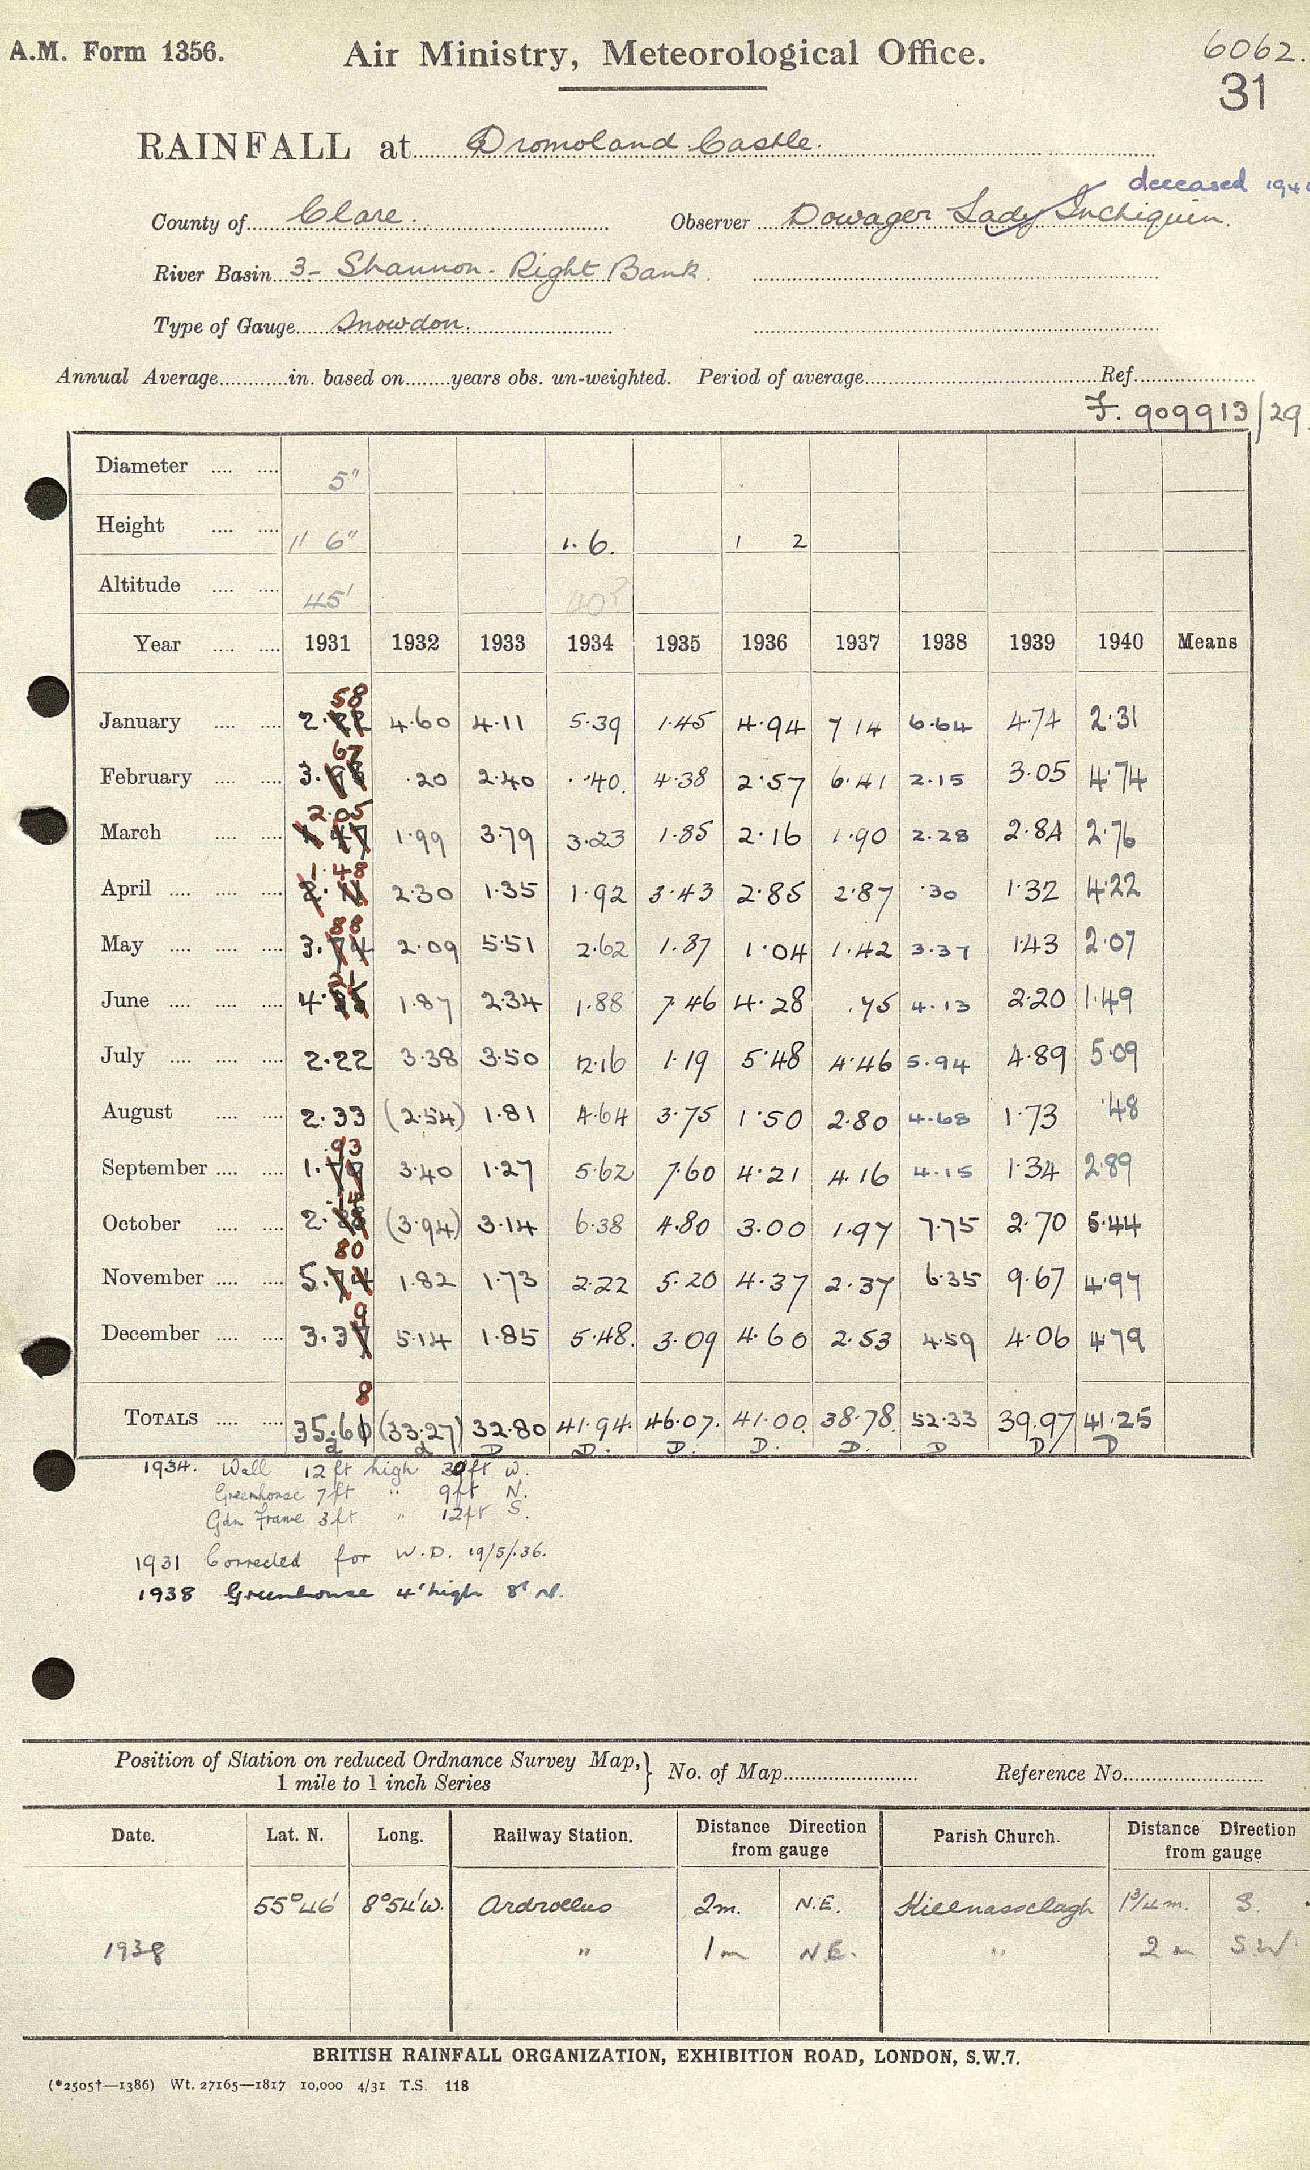 A.M. Form 1356. Air Ministry, Meteorological Office. 6062.
31
RAINFALL at Dromoland Castle.
deceased
County of Clare. Observer Dowager Lady Inchiquin.
River Basin 3- Shannon. Right Bank.
Type of Gauge Snowdon.
Annual Average in. based on years obs. un-weighted. Period of average Ref.
F. 909913/29
Diameter 5"
Height 1' 6" 1. 6. 1 2
Altitude 45'
Year 1931 1932 1933 1934 1935 1936 1937 1938 1939 1940 Means
58
January 2. 4.60 4.11 5.39 1.45 4.94 7 14 6.64 4.74 2.31
67
February 3. .20 2.40 .40. 4.38 2.57 6.41 2.15 3.05 4.74
2.05
March 1.47 1.99 3.79 3.23 1.85 2.16 1.90 2.28 2.84 2.76
1.48
April 2.11 2.30 1.35 1.92 3.43 2.85 2.87 .30 1.32 4.22
88
May 3.74 2.09 5.51 2.62 1.87 1.04 1.42 3.37 1.43 2.07
21
June 4. 1.87 2.34 1.88 7.46 4.28 .75 4.13 2.20 1.49
July 2.22 3.38 3.50 12.16 1.19 5.48 4.46 5.94 4.89 5.09
August 2.33 (2.54) 1.81 4.64 3.75 1.50 2.80 4.68 1.73 .48
93
September 1.77 3.40 1.27 5.62 7.60 4.21 4.16 4.15 1.34 2.89
14
October 2. (3.94) 3.14 6.38 4.80 3.00 1.97 7.75 2.70 5.44
80
November 5.74 1.82 1.73 2.22 5.20 4.37 2.37 6.35 9.67 4.97
9
December 3.37 5.14 1.85 5.48. 3.09 4.60 2.53 4.59 4.06 4.79
8
TOTALS 35.60 (33.27) 32.80 41.94. 46.07. 41.00. 38.78. 52.33 39.97 41.25
D D. D. D. D. D D D
1934. Wall 12 ft high 30ft W.
Greenhouse 7ft " 9ft N.
Gdn Frame 3ft " 12ft S.
1931 Corrected for W.D. 19/5/36.
1938 Greenhouse 4' high 8' N.
Position of Station on reduced Ordnance Survey Map, 1 mile to 1 inch Series } No. of Map Reference No.
Date. Lat. N. Long. Railway Station. Distance Direction from gauge Parish Church. Distance Direction from gauge
55°46' 8°54'W. Ardrollus 2m. N.E. Kilnassolagh 1¾m. S.
1938 " 1m N.E. " 2 m S.W
BRITISH RAINFALL ORGANIZATION, EXHIBITION ROAD, LONDON, S.W.7.
(*2505†—1386) Wt. 27165—1817 10,000 4/31 T.S. 118